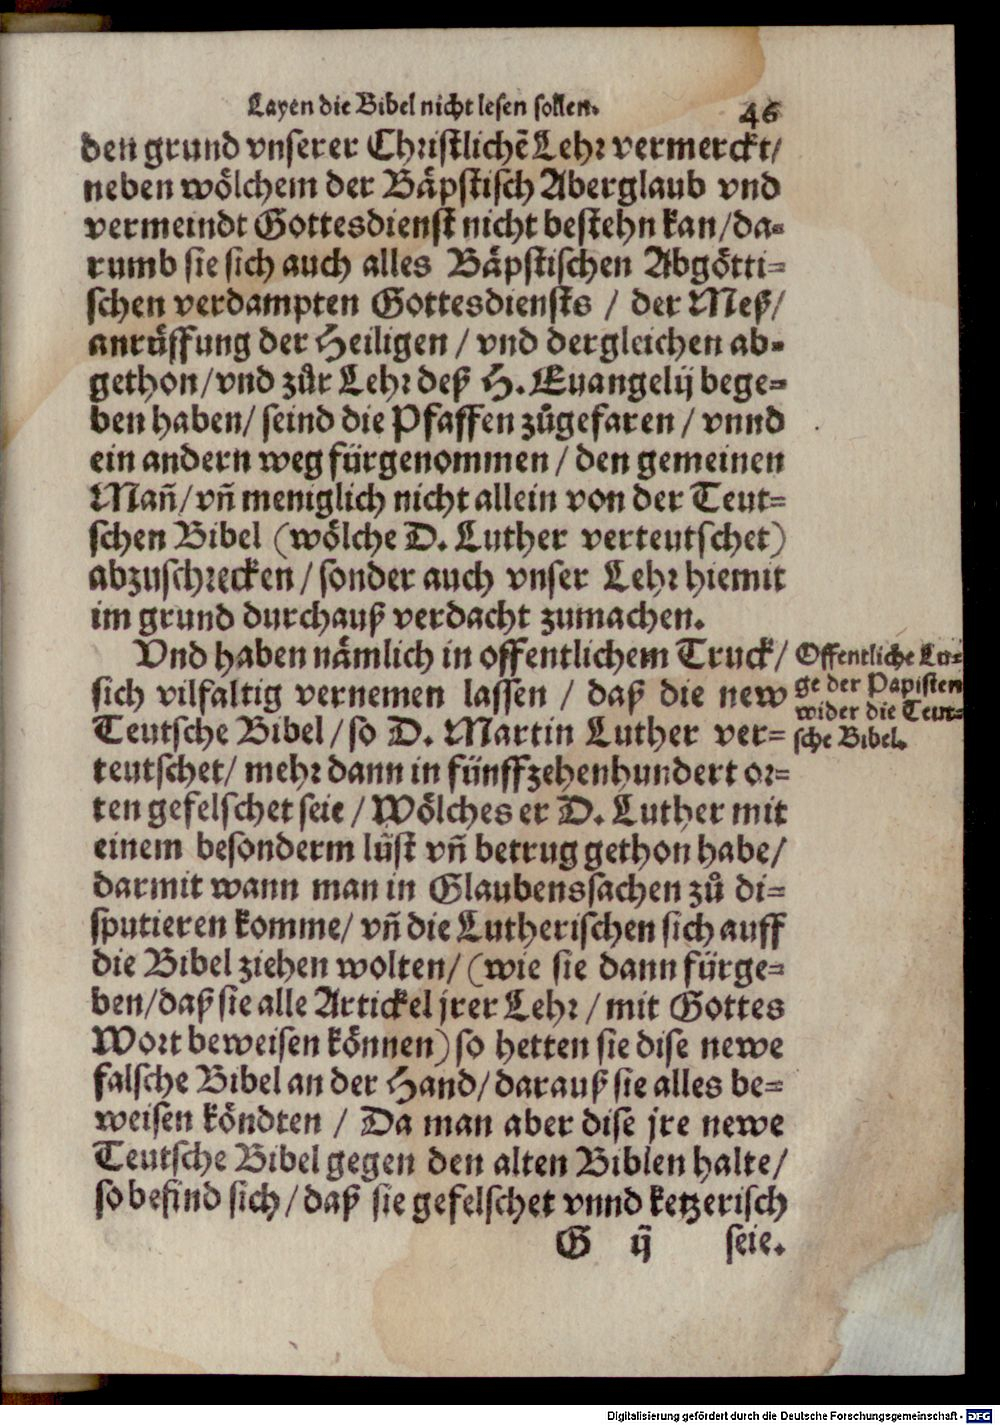 Layen die Bibel nicht lesen sollen.
46
den grund vnserer Christlichẽ Lehr vermerckt/
neben wölchem der Bäpstisch Aberglaub vnd
vermeindt Gottesdienst nicht bestehn kan/da-
rumb sie sich auch alles Bäpstischen Abgötti-
schen verdampten Gottesdiensts / der Meß/
anrüffung der Heiligen / vnd dergleichen ab-
gethon/vnd zůr Lehr deß H. Euangelij bege-
ben haben/ seind die Pfaffen zůgefaren / vnnd
ein andern weg fürgenommen / den gemeinen
Mañ/ vñ meniglich nicht allein von der Teut-
schen Bibel (wölche D. Luther verteutschet)
abzuschrecken / sonder auch vnser Lehr hiemit
im grund durchauß verdacht zumachen.
Vnd haben nämlich in offentlichem Truck/
sich vilfaltig vernemen lassen / daß die new
Teutsche Bibel / so D. Martin Luther ver-
teutschet/ mehr dann in fünffzehenhundert or-
ten gefelschet seie / Wölches er D. Luther mit
einem besonderm lüst vñ betrug gethon habe/
darmit wann man in Glaubenssachen zů di-
sputieren komme/ vñ die Lutherischen sich auff
die Bibel ziehen wolten/ (wie sie dann fürge-
ben/daß sie alle Artickel jrer Lehr / mit Gottes
Wort beweisen können) so hetten sie dise newe
falsche Bibel an der Hand/ darauß sie alles be-
weisen köndten / Da man aber dise jre newe
Teutsche Bibel gegen den alten Biblen halte/
so befind sich / daß sie gefelschet vnnd ketzerisch
G ij seie.
Offentliche Lu-
ge der Papisten
wider die Teut-
sche Bibel.
Digitalisierung gefördert durch die Deutsche Forschungsgemeinschaft - DFG